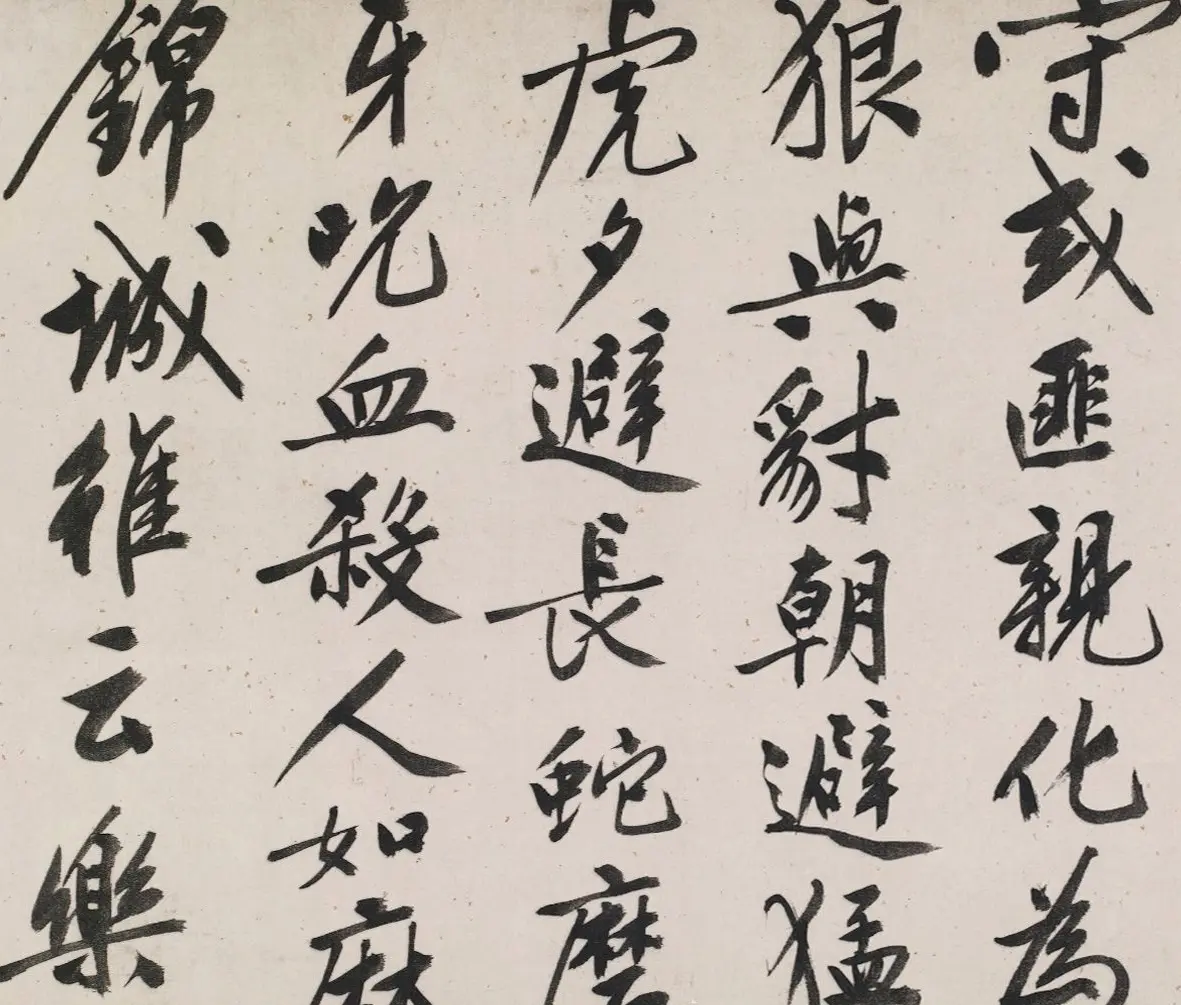 守或匪親化為
狼與豺朝避猛
虎夕避長蛇磨
牙吮血殺人如麻
錦城雖云樂